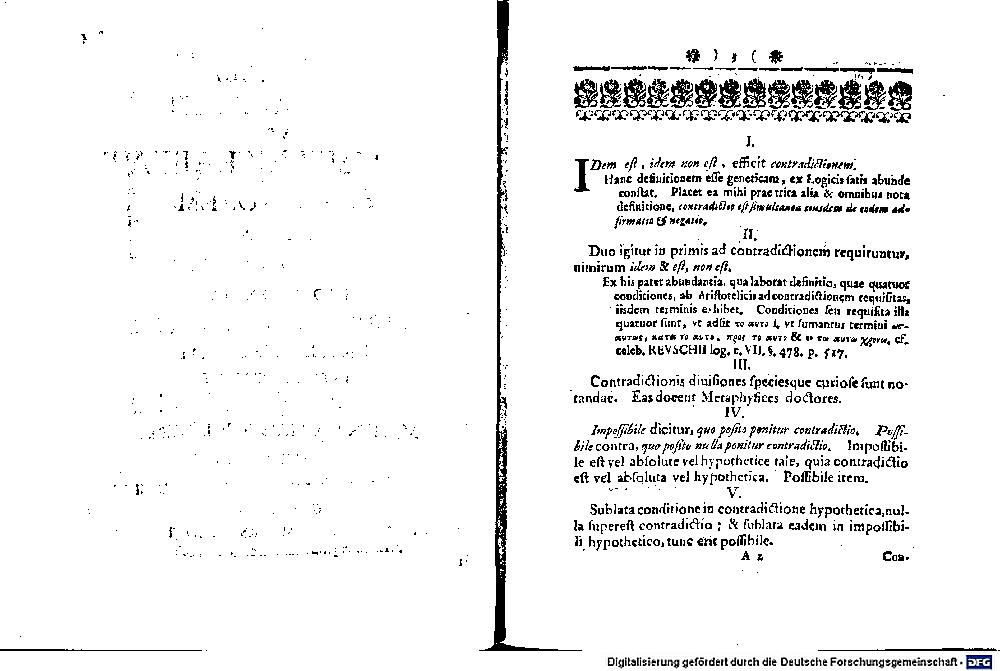 ) 3 (
I.
IDem eſt, idem non eſt, efficit contradictionem.
Hanc definitionem eſſe geneticam, ex Logicis ſatis abunde
conſtat. Placet ea mihi prae trita alia & omnibus nota
definitione, contradictio eſt ſimultanea eiusdem de eodem ad-
firmatio & negatio.
II.
Duo igitur in primis ad contradictionem requiruntur,
nimirum idem & eſt, non eſt.
Ex his patet abundantia, qua laborat definitio, quae quatuor
conditiones, ab Ariſtotelicis ad contradictionem requiſitas,
iisdem terminis exhibet. Conditiones ſeu requiſita illa
quatuor ſunt, vt adſit το αυτο, vt ſumantur termini
κατα το αυτο, προς το αυτο & εν τω αυτω χρονω, cf.
celeb. REVSCHII log. c. VII. §. 478. p. 517.
III.
Contradictionis diuiſiones ſpeciesque curioſe ſunt no-
tandae. Eas docent Metaphyſices doctores.
IV.
Impoſſibile dicitur, quo poſito ponitur contradictio. Poſſi-
bile contra, quo poſito nulla ponitur contradictio. Impoſſibi-
le eſt vel abſolute vel hypothetice tale, quia contradictio
eſt vel abſoluta vel hypothetica. Poſſibile item.
V.
Sublata conditione in contradictione hypothetica, nul-
la ſupereſt contradictio; & ſublata eadem in impoſſibi-
li hypothetico, tunc erit poſſibile.
A 2 Con-
Digitalisierung gefördert durch die Deutsche Forschungsgemeinschaft - DFG